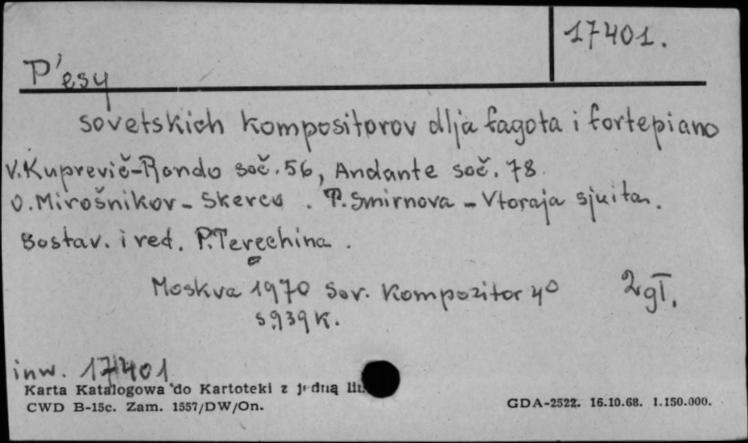 17401.
P'esy
sovetskich kompositorov dlja fagota i fortepiano
V. Kuprevič-Rondo soč. 56, Andante soč. 78.
O. Mirošnikov - Skerco. T. Smirnova - Vtoraja sjuita.
Sostav. i red. P. Terechina.
Moskva 1970 Sov. Kompozitor 4° 2 gł.
s939K.
inw. 17401
Karta Katalogowa do Kartoteki z jedną
CWD B-15c. Zam. 1557/DW/On.
GDA-2522. 16.10.68. 1.150.000.